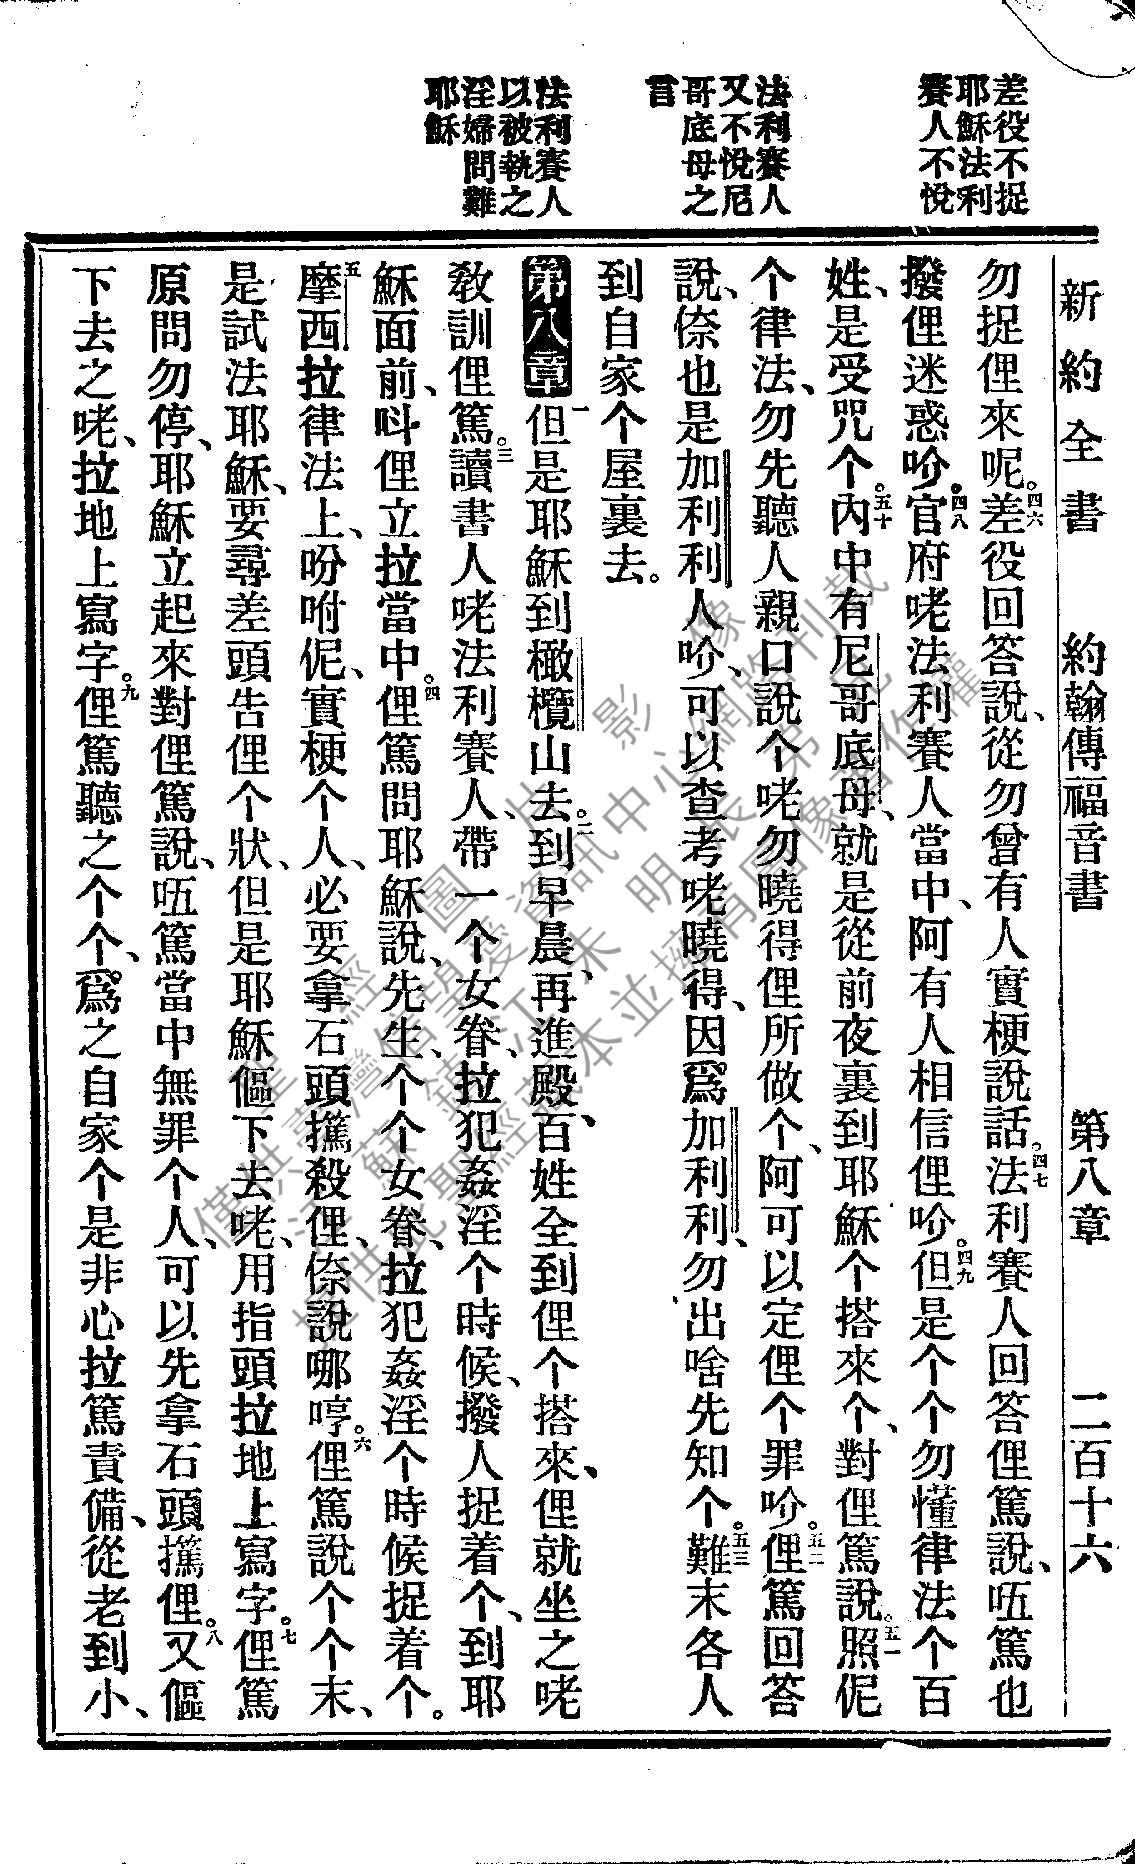 新約全書 約翰傳福音書 第八章 二百十六
差役不捉
耶穌法利
賽人不悅
法利賽人
又不悅尼
哥底母之
言
法利賽人
以被執之
淫婦問難
耶穌
勿捉俚來呢。四六差役回答說、從勿曾有人實梗說話。四七法利賽人回答俚篤說、㕶篤也
撥俚迷惑吤。四八官府咾法利賽人當中、阿有人相信俚吤。四九但是个个勿懂律法个百
姓、是受咒个。五十內中有尼哥底母、就是從前夜裏到耶穌个搭來个、對俚篤說。五一照伲
个律法、勿先聽人親口說个咾勿曉得俚所做个、阿可以定俚个罪吤。五二俚篤回答
說、倷也是加利利人吤、可以查考咾曉得、因爲加利利、勿出啥先知个。五三難末各人
到自家个屋裏去。
第八章 一但是耶穌到橄欖山去。二到早晨、再進殿、百姓全到俚个搭來、俚就坐之咾
敎訓俚篤。三讀書人咾法利賽人、帶一个女眷、拉犯姦淫个時候、撥人捉着个、到耶
穌面前、呌俚立拉當中。四俚篤問耶穌說、先生、个个女眷、拉犯姦淫个時候捉着个。
五摩西拉律法上、吩咐伲、實梗个人、必要拿石頭㩧殺俚、倷說哪哼。六俚篤說个个末、
是試法耶穌、要尋差頭告俚个狀、但是耶穌傴下去咾、用指頭拉地上寫字。七俚篤
原問勿停、耶穌立起來對俚篤說、㕶篤當中無罪个人、可以先拿石頭㩧俚。八又傴
下去之咾、拉地上寫字。九俚篤聽之个个、爲之自家个是非心拉篤責備、從老到小、